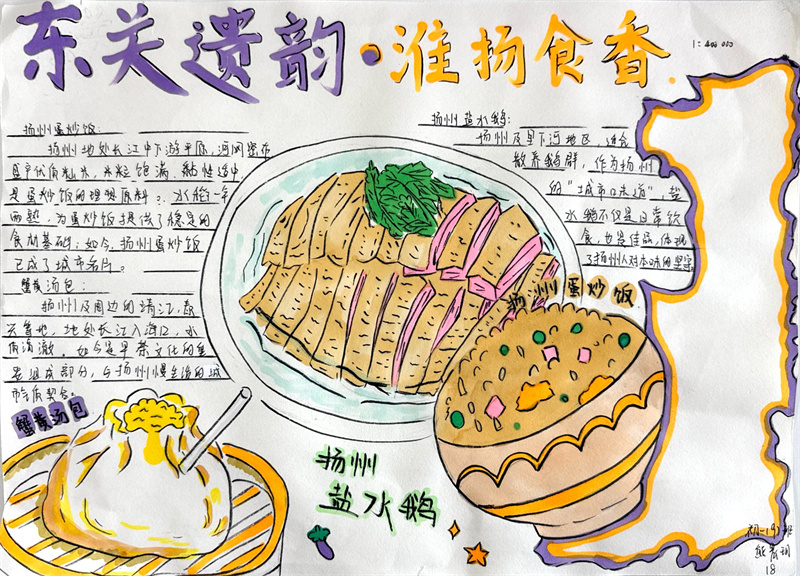 东关遗韵·淮扬食香
1:400 000
扬州蛋炒饭:
扬州地处长江中下游平原,河网密布
盛产优质籼米,米粒饱满,黏性适中
是蛋炒饭的理想原料。水稻一年
两熟,为蛋炒饭提供了稳定的
食材基础;如今,扬州蛋炒饭
已成了城市名片。
蟹黄汤包:
扬州及周边的靖江,泰
兴等地,地处长江入海口,水
质清澈。如今是早茶文化的重
要组成部分,与扬州慢生活的城
市气质契合。
扬州盐水鹅:
扬州及里下河地区,适合
散养鹅群,作为扬州
的“城市口味道”,盐
水鹅不仅是日常饮
食,也是佳品,体现
了扬州人对本味的坚守
扬州蛋炒饭
蟹黄汤包
扬州
盐水鹅
初一(9)班
18